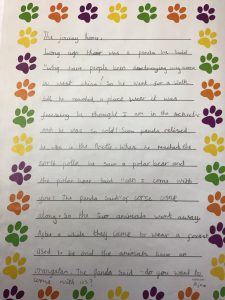 The jouney home.
Long ago there was a panda he said
"Why have people been destroying my home
in west china! So he went for a walk
till he reached a place wear it was
freezing he thought I am in the
and he was so cold! Soon panda relised
he was in the Arctic. When he reached the
north polle he saw a polar bear and
the polar bear said "can I come with
you? The panda said of corse come
along. So the two animals went away.
After a while they came to wear a forest
used to be and the animals saw an
orangutan. The panda said "do you want to
come with us?